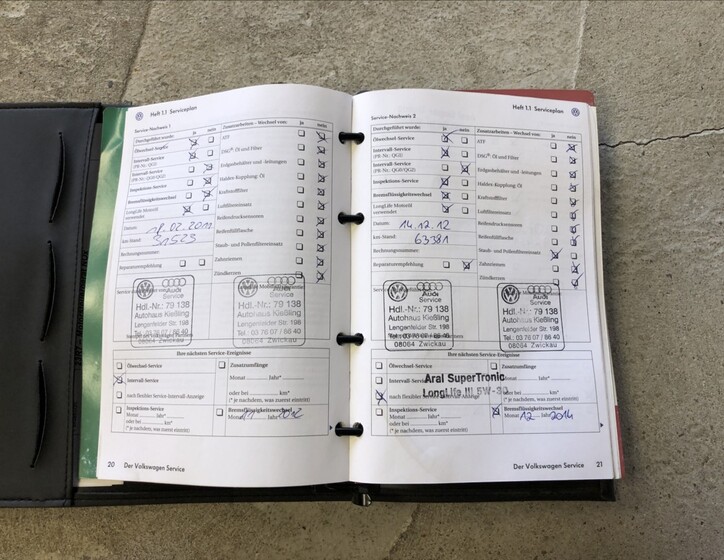 Heft 1.1 Serviceplan
Service-Nachweis 1
Durchgeführt wurde: ja nein Zusatzarbeiten - Wechsel von: ja nein
Ölwechsel-Service ATF
Intervall-Service
(PR-Nr.: QG1) DSG®-Öl und Filter
Intervall-Service
(PR-Nr.: QG0/QG2) Erdgasbehälter und -leitungen
Inspektions-Service Haldex-Kupplung: Öl
Bremsflüssigkeitswechsel Kraftstofffilter
LongLife Motoröl
verwendet Luftfiltereinsatz
Datum: 02.2012 Reifendruckssensoren
km-Stand: 51523 Reifenfüllflasche
Rechnungsnummer: Staub- und Pollenfiltereinsatz
Reparaturempfehlung Zahnriemen
Zündkerzen
Audi
Service
Hdl.-Nr.: 79 138
Autohaus Kießling
Lengenfelder Str. 198
Tel.: 03 76 07 / 66 40
08064 Zwickau
Audi
Service
Hdl.-Nr.: 79 138
Autohaus Kießling
Lengenfelder Str. 198
Tel.: 03 76 07 / 66 40
08064 Zwickau
Ihre nächsten Service-Ereignisse
Ölwechsel-Service Zusatzumfänge
Intervall-Service Monat Jahr*
nach flexibler Service-Intervall-Anzeige oder bei km*
(* je nachdem, was zuerst eintritt)
Inspektions-Service Bremsflüssigkeitswechsel
Monat Jahr* Monat Jahr 2012
oder bei km*
(* je nachdem, was zuerst eintritt)
20 Der Volkswagen Service
Heft 1.1 Serviceplan
Service-Nachweis 2
Durchgeführt wurde: ja nein Zusatzarbeiten - Wechsel von: ja nein
Ölwechsel-Service ATF
Intervall-Service
(PR-Nr.: QG1) DSG®-Öl und Filter
Intervall-Service
(PR-Nr.: QG0/QG2) Erdgasbehälter und -leitungen
Inspektions-Service Haldex-Kupplung: Öl
Bremsflüssigkeitswechsel Kraftstofffilter
LongLife Motoröl
verwendet Luftfiltereinsatz
Datum: 14.12.12 Reifendruckssensoren
km-Stand: 63381 Reifenfüllflasche
Rechnungsnummer: Staub- und Pollenfiltereinsatz
Reparaturempfehlung Zahnriemen
Zündkerzen
Audi
Service
Hdl.-Nr.: 79 138
Autohaus Kießling
Lengenfelder Str. 198
Tel.: 03 76 07 / 66 40
08064 Zwickau
Audi
Service
Hdl.-Nr.: 79 138
Autohaus Kießling
Lengenfelder Str. 198
Tel.: 03 76 07 / 66 40
08064 Zwickau
Ihre nächsten Service-Ereignisse
Ölwechsel-Service Zusatzumfänge
Intervall-Service Monat Jahr*
Aral SuperTronic
LongLife III 5W-30
nach flexibler Service-Intervall-Anzeige
(* je nachdem, was zuerst eintritt)
Inspektions-Service Bremsflüssigkeitswechsel
Monat Jahr* Monat 12 Jahr 2014
oder bei km*
(* je nachdem, was zuerst eintritt)
Der Volkswagen Service 21